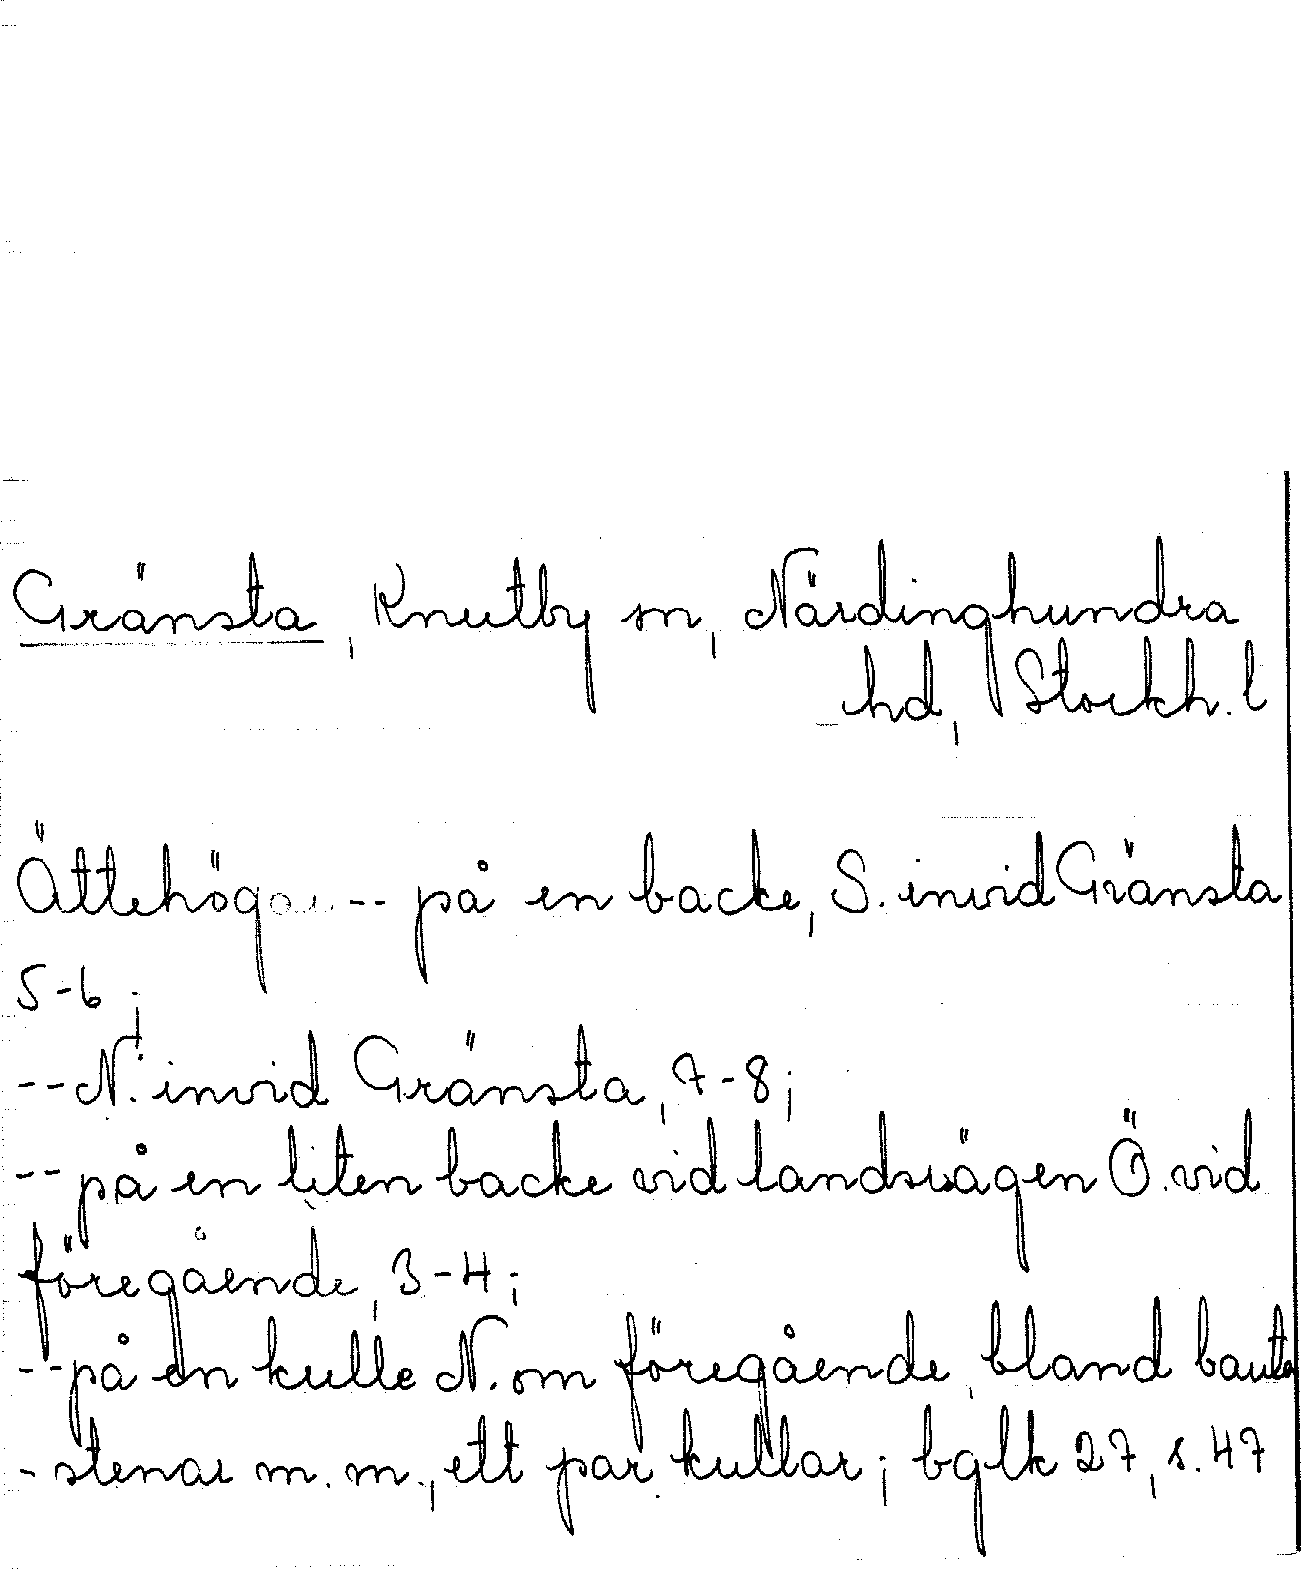 Gränsta, Knutby sn, Närdinghundra
hd, Stockh. l
Ättehögar -- på en backe, S. invid Gränsta
5-6;
-- N. invid Gränsta, 7-8;
-- på en liten backe vid landsvägen Ö. vid
föregående, 3-4;
-- på en kulle N. om föregående, bland bauta
- stenar m. m., ett par kullar; bglk 27, s. 47